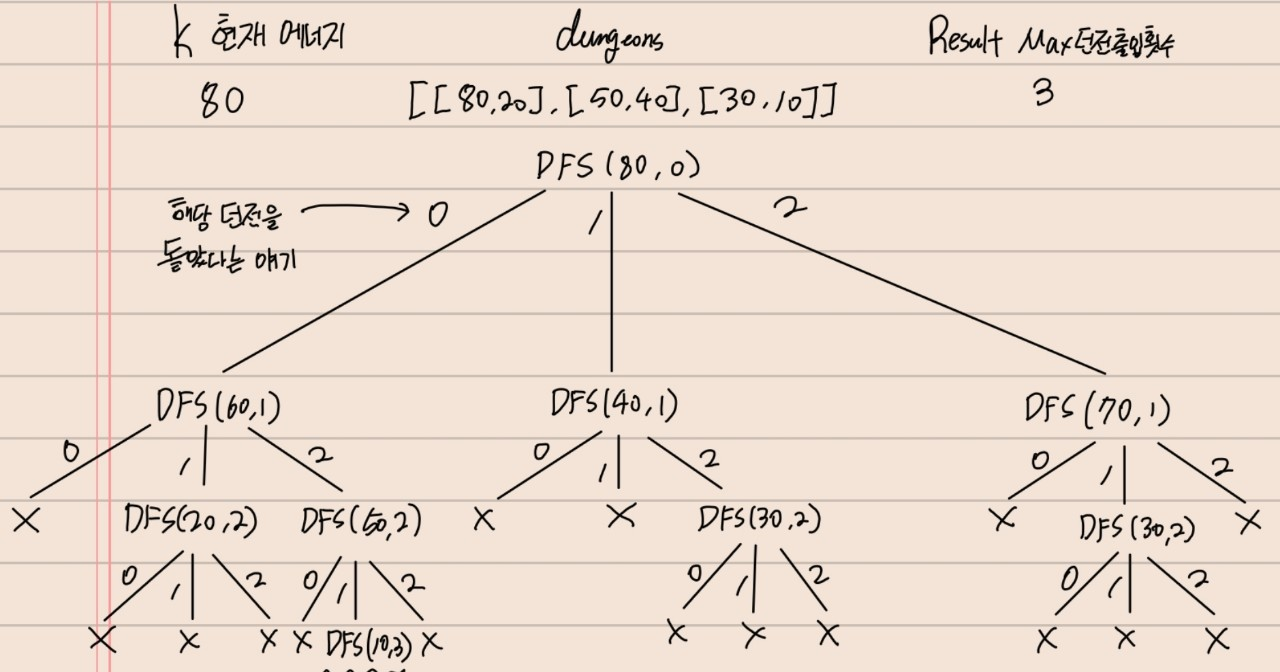 k 현재 에너지 dungeons Result Max던전출입횟수
80 [[80,20],[50,40],[30,10]] 3
DFS(80,0)
해당 던전을 0 1 2
돌았다는 얘기
DFS(60,1) DFS(40,1) DFS(70,1)
0 1 2 0 1 2 0 1 2
X DFS(20,2) DFS(50,2) X X DFS(30,2) X DFS(30,2) X
0 1 2 0 1 2 0 1 2 0 1 2
X X X X DFS(10,3) X X X X X X X